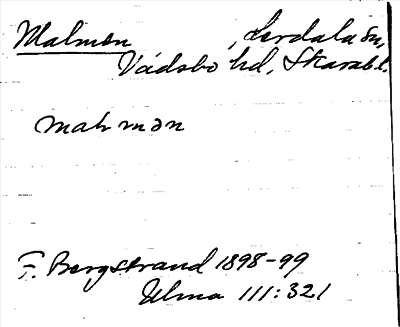 Malmön, Lerdala sn,
Vadsbo hd, Skarab.l.
malmön
F. Bergstrand 1898-99
Ulma 111:321